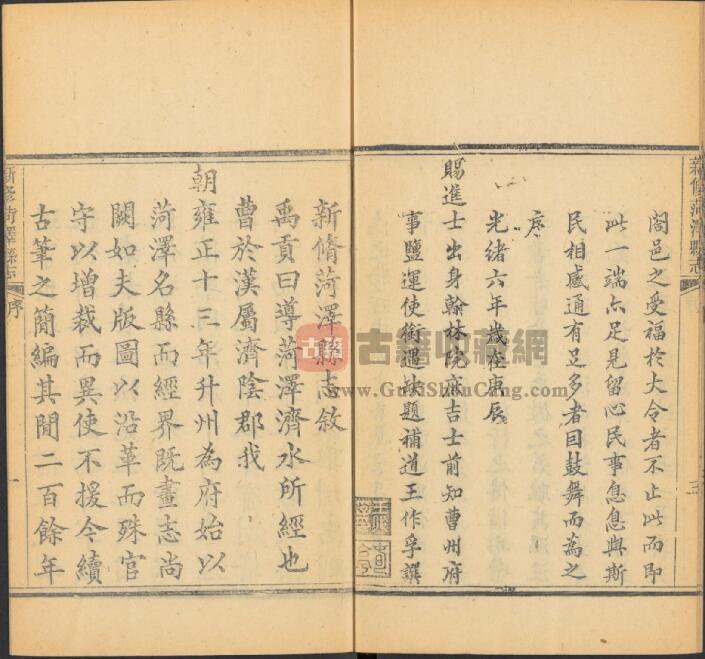 新修菏澤縣志
三
閤邑之受福於大令者不止此而即
此一端亦足見留心民事息息與斯
民相感通有足多者曰鼓舞而為之
序
光緒六年歲在庚辰
賜進士出身翰林院庶吉士前知曹州府
事鹽運使銜遇缺題補道王作孚譔
新脩菏澤縣志敘
禹貢曰導菏澤濟水所經也
曹於漢屬濟陰郡我
朝雍正十三年升州為府始以
菏澤名縣而經界既畫志尚
闕如夫版圖以沿革而殊官
守以增裁而異使不援今續
古筆之簡編其閒二百餘年
新修菏澤縣志
序
一
古籍
古籍收藏網
www.GuJiShuCang.com